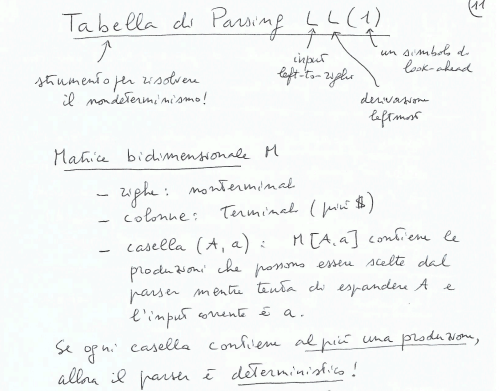 11
Tabella di Parsing LL(1)
strumento per risolvere
il nondeterminismo!
input
left-to-right
derivazione
leftmost
un simbolo di
look-ahead
Matrice bidimensionale M
- righe: nonterminali
- colonne: Terminali (più $)
- casella (A, a): M[A,a] contiene le
produzioni che possono essere scelte dal
parser mentre tenta di espandere A e
l'input corrente è a.
Se ogni casella contiene al più una produzione,
allora il parser è deterministico!